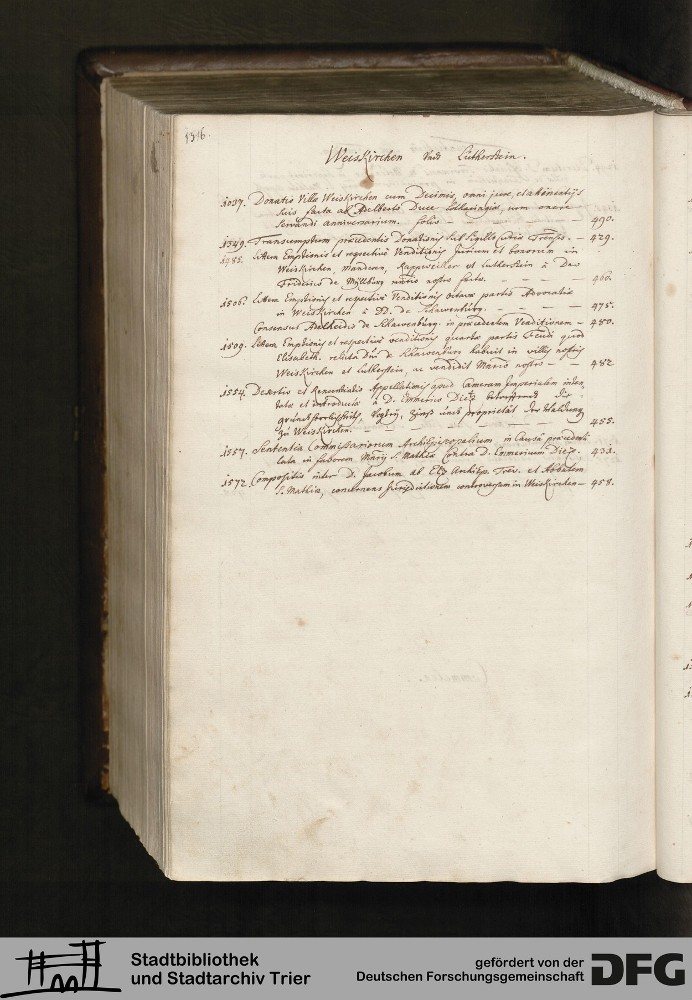 1516.
Weiskirchen und Lutherstein.
1037. Donatio Villæ Weiskirchen cum Decimis, omni jure, et attinentiis
suis facta ab Adelberto Duce Lotharingiæ, cum onere
servandi anniversarium. folio — — — — 490.
1349. Transumptum præcedentis Donationis sub sigillo Curiæ Trevers. — 429.
1485. Litteræ Emptionis et respectivè Venditionis Jurium et bonorum in
Weiskirchen, Mandern, Rappweiler et Lutherstein à Dno
Friderico de Millburg nostro factæ. — — — — 460.
1506. Litteræ Emptionis et respectivè Venditionis octavæ partis Advocatiæ
in Weiskirchen à DD. de Schawenburg. — — — — 475.
Consensus Adelheidis de Schawenburg in præcedentem Venditionem — 480.
1509. Litteræ Emptionis et respectivè venditionis quartæ partis Feudi quod
Elisabeth relicta de Schawenburg habuit in villis nostris
Weiskirchen et Lutherstein, ac vendidit nostro — — 482
1554. Desertio et Renuntiatio Appellationis apud Cameram Imperialem inten
tatæ et introductæ à D. Emmerico Dietz betreffend die
grundtherrlichkeit, Vogtey, Zinss undt proprietät der Waldung
zu Weiskirchen. — — — — 455.
1557. Sententia Commissariorum Archiepiscopalium in Causa præcedenti
lata in favorem S. Mathiæ Contra D. Emericum Dietz. — 433.
1572. Compositio inter D. Jacobum ab Eltz Archiep. Trev. et Abbatem
S. Mathiæ, concernens Jurisdictionem controversam in Weiskirchen — 458.
Stadtbibliothek
und Stadtarchiv Trier
gefördert von der
Deutschen Forschungsgemeinschaft
DFG